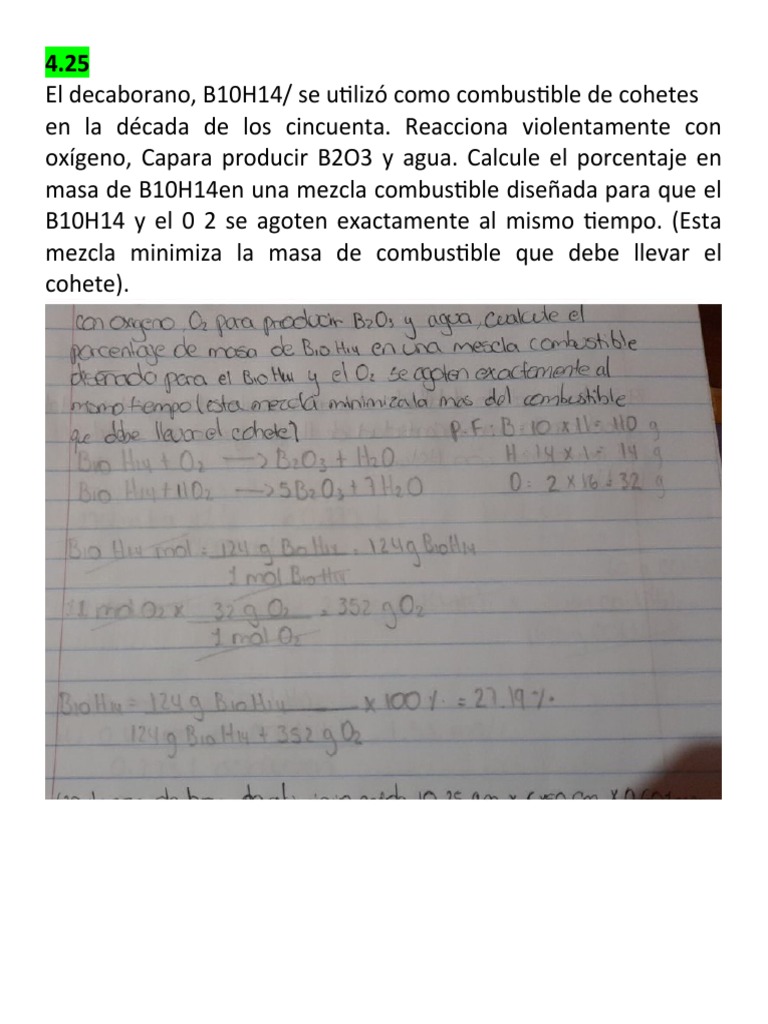 4.25
El decaborano, B10H14/ se utilizó como combustible de cohetes
en la década de los cincuenta. Reacciona violentamente con
oxígeno, Capara producir B2O3 y agua. Calcule el porcentaje en
masa de B10H14en una mezcla combustible diseñada para que el
B10H14 y el 0 2 se agoten exactamente al mismo tiempo. (Esta
mezcla minimiza la masa de combustible que debe llevar el
cohete).
con oxigeno, O2 para producir B2O3 y agua, cualcule el
porcentaje de masa de B10H14 en una mescla combustible
diseñado para el B10H14 y el O2 se agoten exactamente al
mismo tiempo (esta mezcla minimiza la mas del combustible
que debe llevar el cohete? P.F: B=10 x 11= 110 g
B10 H14 + O2 —> B2O3 + H2O H= 14 x 1= 14 g
B10 H14 + 11O2 —> 5B2O3 + 7H2O O: 2 x 16 = 32 g
B10 H14 mol = 124 g B10H14 = 124g B10H14
1 mol B10H14
11 mol O2 x 32 g O2 = 352 g O2
1 mol O2
B10H14 = 124 g B10H14 x 100 % = 27.19 %
124 g B10H14 + 352 g O2